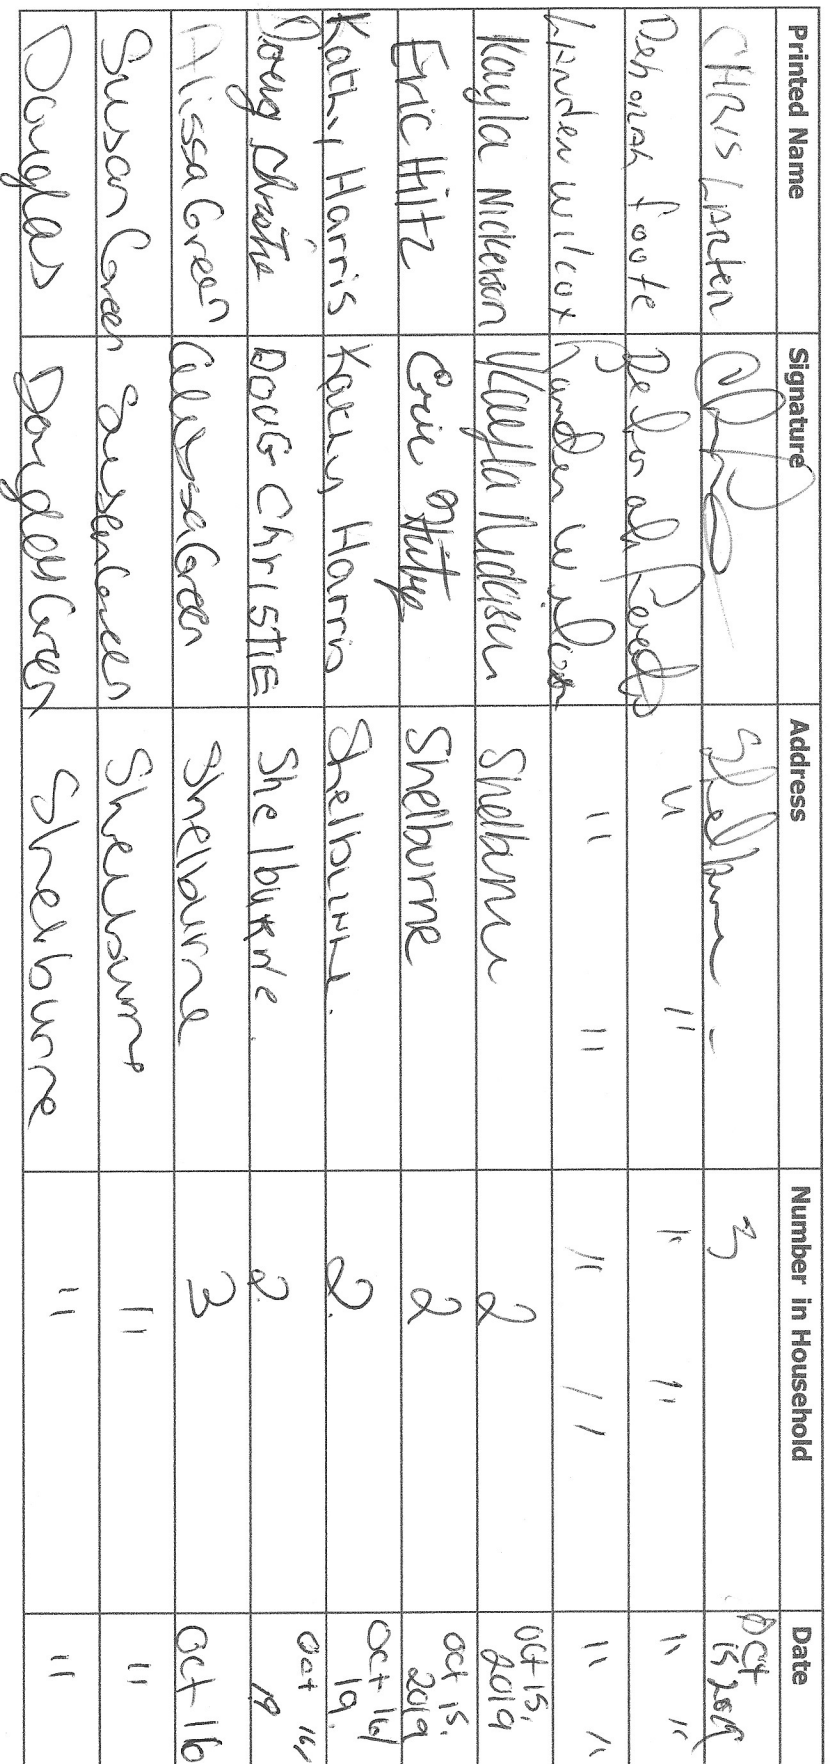 Printed Name Signature Address Number in Household Date
CHRIS LARTER Shelburne - 3 Oct 15 2019
Deborah Foote Deborah Foote " " " " " "
Landen Wilcox Landen Wilcox " " " " " "
Kayla Nickerson Kayla Nickerson Shelburne 2 Oct 15, 2019
Eric Hiltz Eric Hiltz Shelburne 2 Oct 15, 2019
Kathy Harris Kathy Harris Shelburne. 2. Oct 16/ 19.
Doug Christie DOUG ChRISTIE Shelburne. 2. Oct 16/ 19
Alissa Green Alissa Green Shelburne 3 Oct 16
Susan Green Susan Green Shelburne " "
Douglas Douglas Green Shelburne " "